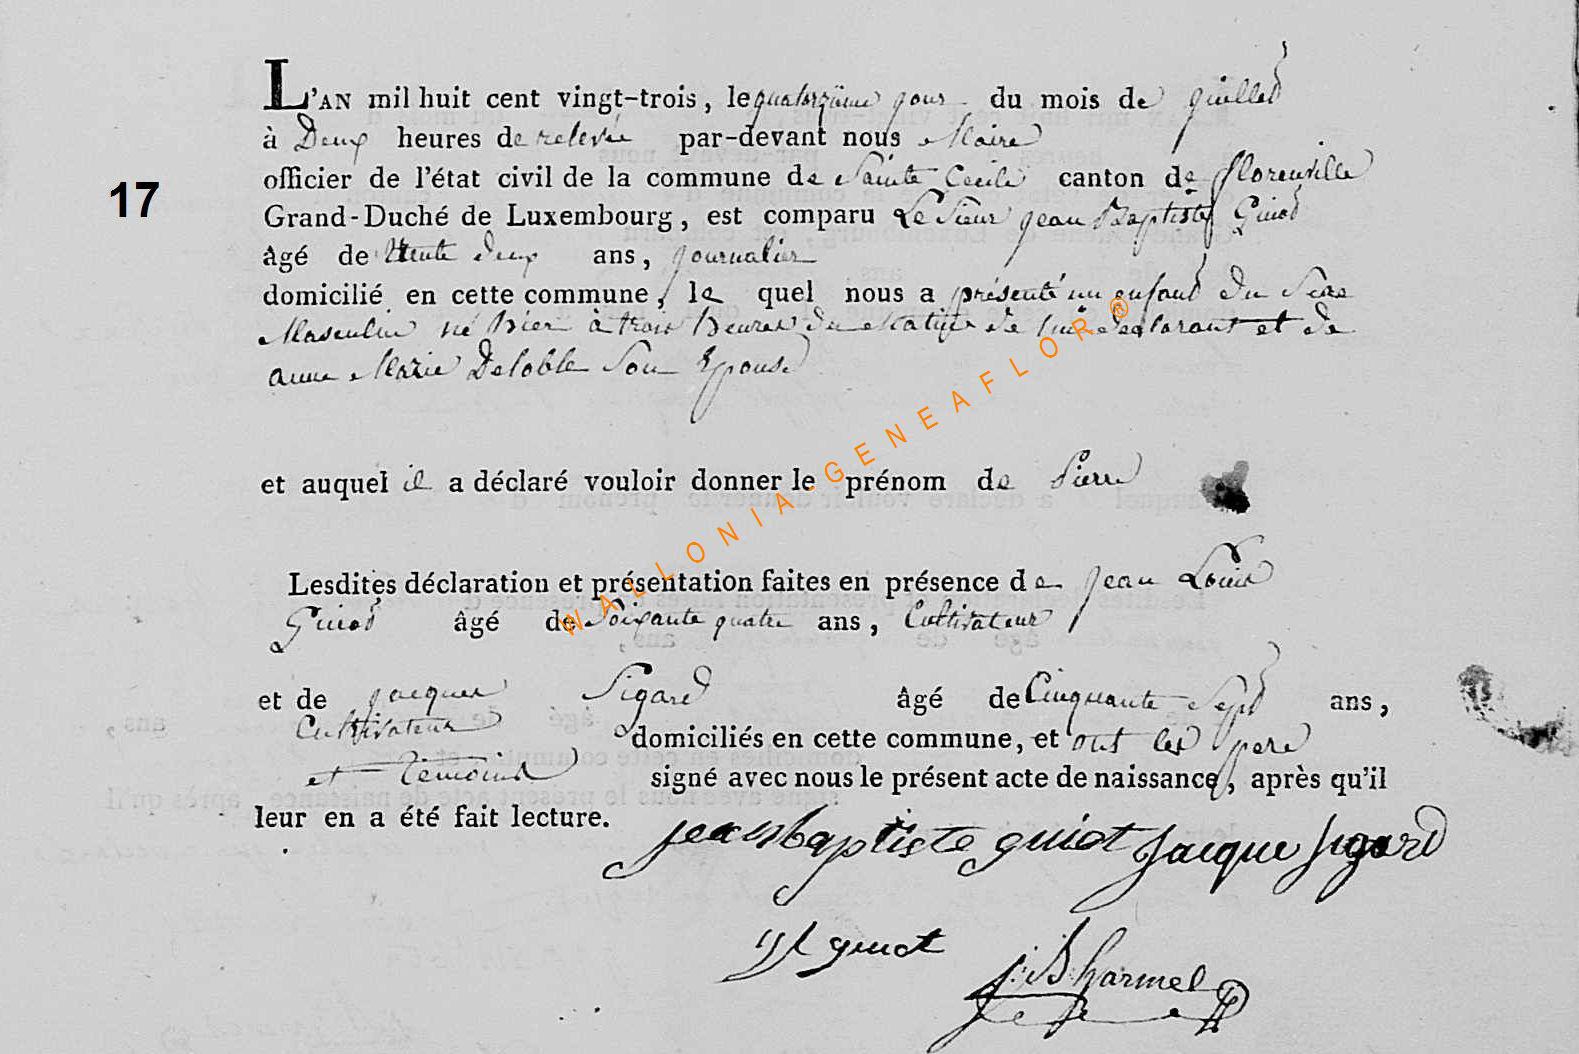 L'AN mil huit cent vingt-trois, le quatorzième jour du mois de juillet
à Deux heures de relevée par-devant nous Maire
officier de l'état civil de la commune de Sainte Cecile canton de florenville
Grand-Duché de Luxembourg, est comparu Le Sieur jean Baptiste Guiot
17
âgé de trente deux ans, journalier
domicilié en cette commune, le quel nous a présenté un enfant du Sexe
Masculin né hier à trois heures du Matin de lui declarant et de
anne Marie Deloble Son Epouse
et auquel il a déclaré vouloir donner le prénom de Pierre
Lesdites déclaration et présentation faites en présence de jean Louis
Guiot âgé de Soixante quatre ans, Cultivateur
et de jacques Sigard âgé de Cinquante Sept ans,
Cultivateur domiciliés en cette commune, et ont les pere
et Temoins signé avec nous le présent acte de naissance, après qu'il
leur en a été fait lecture.
jean baptiste guiot jacque sigard
guiot
j: B: harmel
WALLONIA-GENEAFLOR®